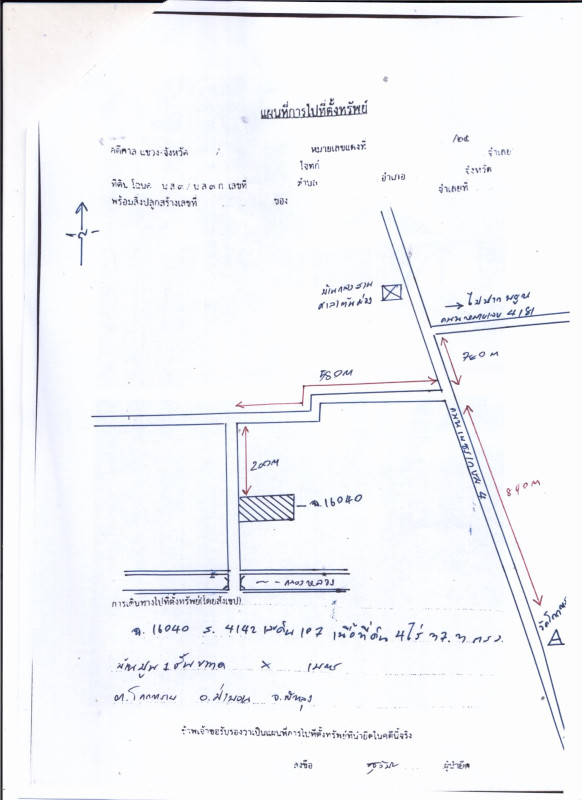 แผนที่การไปที่ตั้งทรัพย์
คดีศาล แขวง-จังหวัด หมายเลขแดงที่ /๒๕
โจทก์ จำเลย
ที่ดิน โฉนด น.ส.๓ / น.ส.๓ ก. เลขที่ ตำบล อำเภอ จังหวัด
พร้อมสิ่งปลูกสร้างเลขที่ ของ จำเลยที่
น
ไปปากพะยูน
ถนนหมายเลข 4181
760 M
580 M
200 M
ฉ. 16040
ถนนเพชรเกษม 4
840 M
คลองหลวง
การเดินทางไปที่ตั้งทรัพย์(โดยสังเขป)
ฉ. 16040 ร. 4142 เลขดิน 107 เนื้อที่ดิน 4 ไร่
บ้านปูน 1 ชั้น ขนาด × เมตร
ต. โคกทราย อ. ป่าบอน จ. พัทลุง
ข้าพเจ้าขอรับรองว่าเป็นแผนที่การไปที่ตั้งทรัพย์ที่นำยึดในคดีนี้จริง
ลงชื่อ ผู้นำยึด